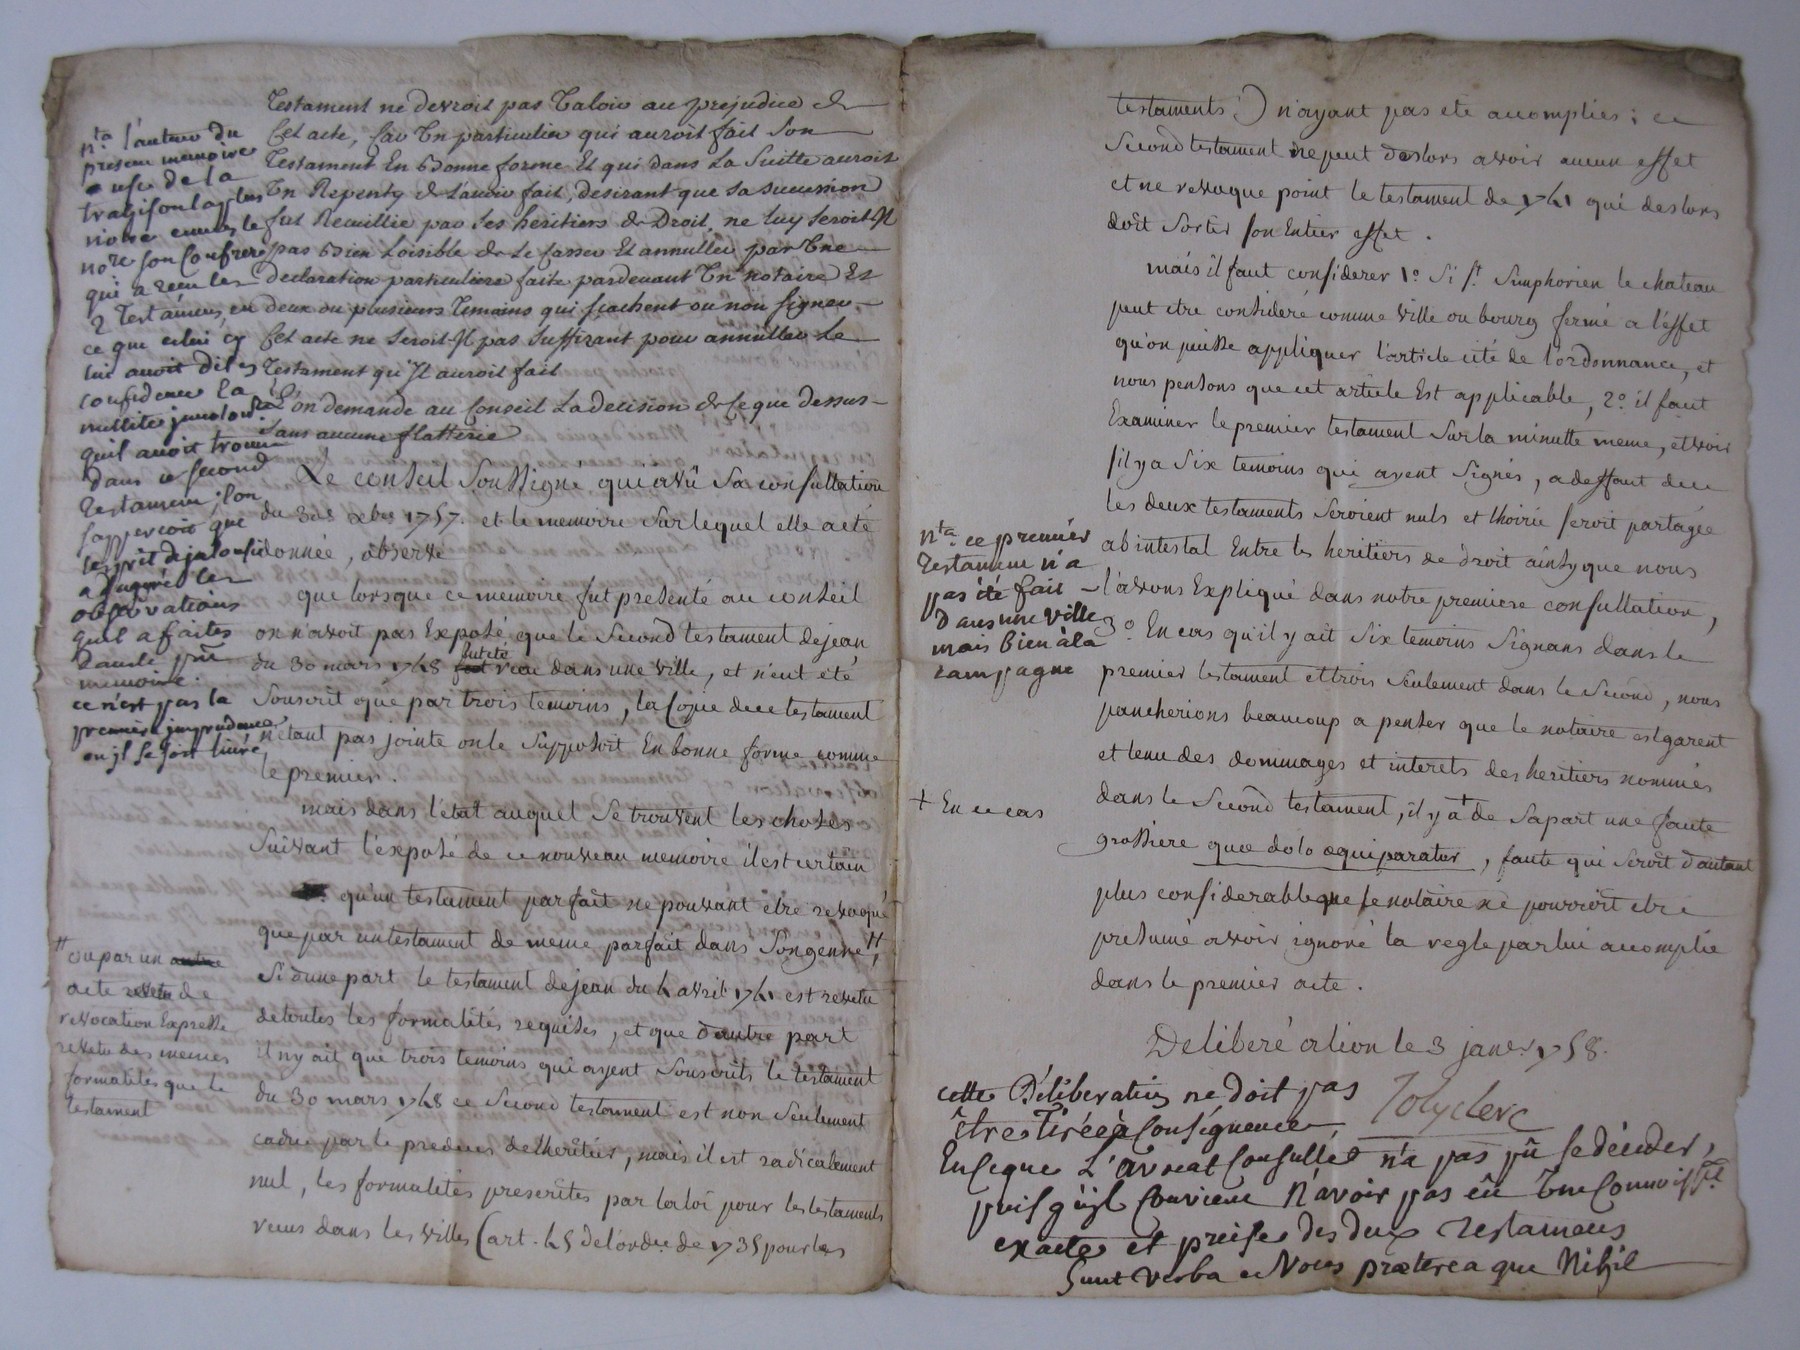 Testament ne devroit pas Valoir au prejudice de
Cet acte, Car Un particulier qui auroit fait Son
Testament En Bonne forme Et qui dans La Suitte auroit
Un Repenty de L'avoir fait, desirant que Sa Succession
fut Recuillie par Ses heritiers de Droit, ne luy Seroit Il
pas Bien Loisible de Le Casser Et annuller par Une
Declaration particuliere faite pardevant Un notaire Et
en deux ou plusieurs Temoins qui scachent ou non Signer
Cet acte ne Seroit Il pas Suffizant pour annuller Le
Testament qu'Il auroit fait
L'on demande au Conseil La decision de Ce que Dessus
Sans aucune flatterie
nta l'auteur du
present memoire
use de la
notre
nore son Confrere
qui a recu les
2 Testamens, en
ce que celui cy
lui avoit dit en
confidence la
nullité
qu'il avoit trouvé
dans ce second
Testament; l'on
s'appercoit que
l'esprit de jalousie
a suggéré les
observations
qu'il a faites
dans le pnt
memoire.
ce n'est pas la
premiere imprudence
ou jl se soit livré
Le conseil Soussigné qui a vû Sa consultation
du 30e xbre 1757. et le memoire Sur lequel elle a eté
donnée, observe
que lorsque ce memoire fut presenté au conseil
on n'avoit pas Exposé que le Second testament de jean
du 30 mars 1748 fut eté recu dans une ville, et n'eut eté
Souscrit que par trois temoins, la Copie de ce testament
n'etant pas jointe on le Supposoit En bonne forme comme
le premier.
mais dans l'état auquel Se trouvent les choses
Suivant l'exposé de ce nouveau memoire il est certain
qu'un testament parfait ne pouvant être revoqué
que par un testament de meme parfait dans Son genre, #
Si d'une part le testament de jean du 4 avril 1741 est revetu
de toutes les formalités requises, et que d'autre part
il n'y ait que trois temoins qui ayent Souscrits le testament
du 30 mars 1748 ce Second testament est non Seulement
caduc par le predeces de l'heritier, mais il est radicalement
nul, les formalités prescrites par la loi pour les testaments
recus dans les villes (art. 45 de l'ordce. de 1735 pour les
# ou par un autre
acte revetu de
revocation Expresse
revetu des memes
formalités que le
testament
testaments) n'ayant pas eté accomplies; ce
Second testament ne peut deslors avoir aucun effet
et ne revoque point le testament de 1741 qui deslors
doit Sortir Son Entier effet.
mais il faut considerer 1o. Si St. Simphorien le chateau
peut etre consideré comme ville ou bourg fermé a l'effet
qu'on puisse appliquer l'article cité de l'ordonnance, et
nous pensons que cet article Est applicable, 2o. il faut
Examiner le premier testament Sur la minutte meme, et voir
s'il y a Six temoins qui ayent Signés, a deffaut de ce
les deux testaments Seroient nuls et l'hoirie Seroit partagée
ab intestat Entre les heritiers de droit ainsy que nous
l'avons Expliqué dans notre premiere consultation,
3o. En cas qu'il y ait Six temoins Signans dans le
premier testament et trois Seulement dans le Second, nous
pancherions beaucoup a penser que le notaire est garent
et tenu des dommages et interets des heritiers nommés
dans le Second testament, il y a + de Sa part une faute
grossiere quae dolo aequiparatur, faute qui Seroit d'autant
plus considerable que le notaire ne pourroit etre
presumé avoir ignoré la regle par lui accomplie
dans le premier acte.
Deliberé a lion le 3 janer. 1758.
Jolyclerc
nta. ce premier
Testament n'a
pas été fait
Dans une ville
mais bien à la
campagne
+ En ce cas
cette Déliberation ne doit pas
être Tirée à Conséquence
En ce que L'avocat Consulté n'a pas pû se décider,
puis qu'jl Convient N'avoir pas eû Une Connoissce
exacte et précise des deux Testamens
Sunt Verba et Voces praeterea que Nihil